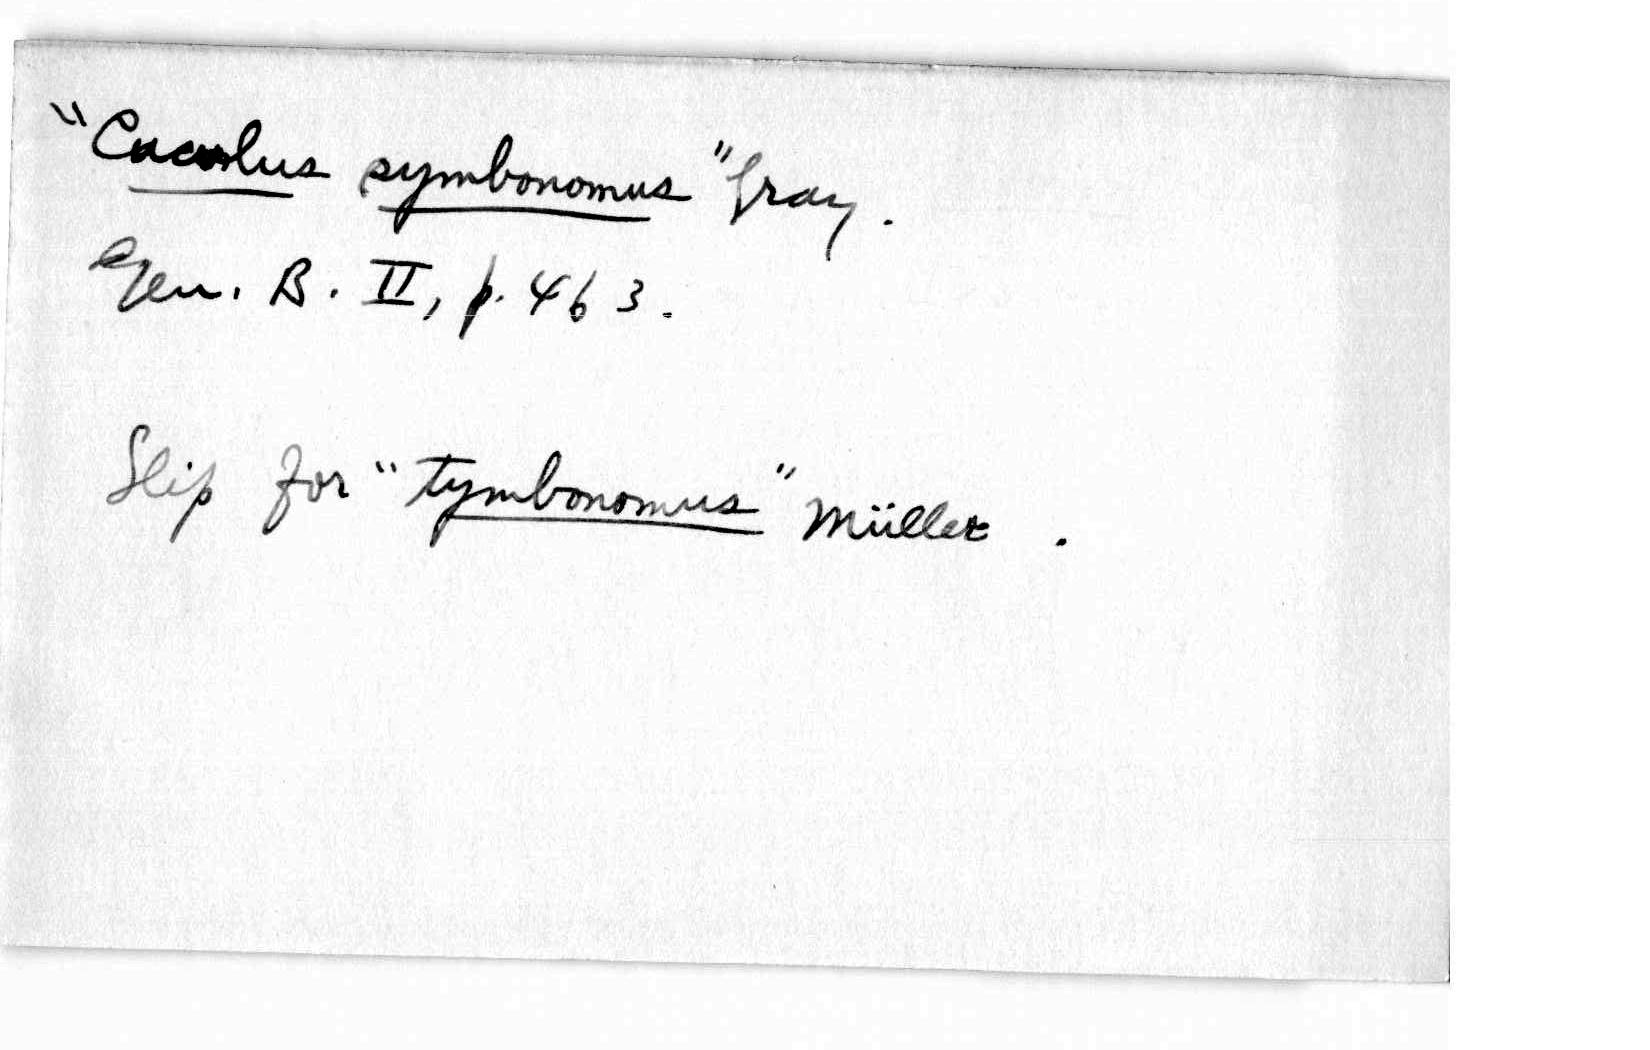 "Cuculus symbonomus" Gray.
Gen. B. II, p. 463.
Slip for "tymbonomus" Müller.